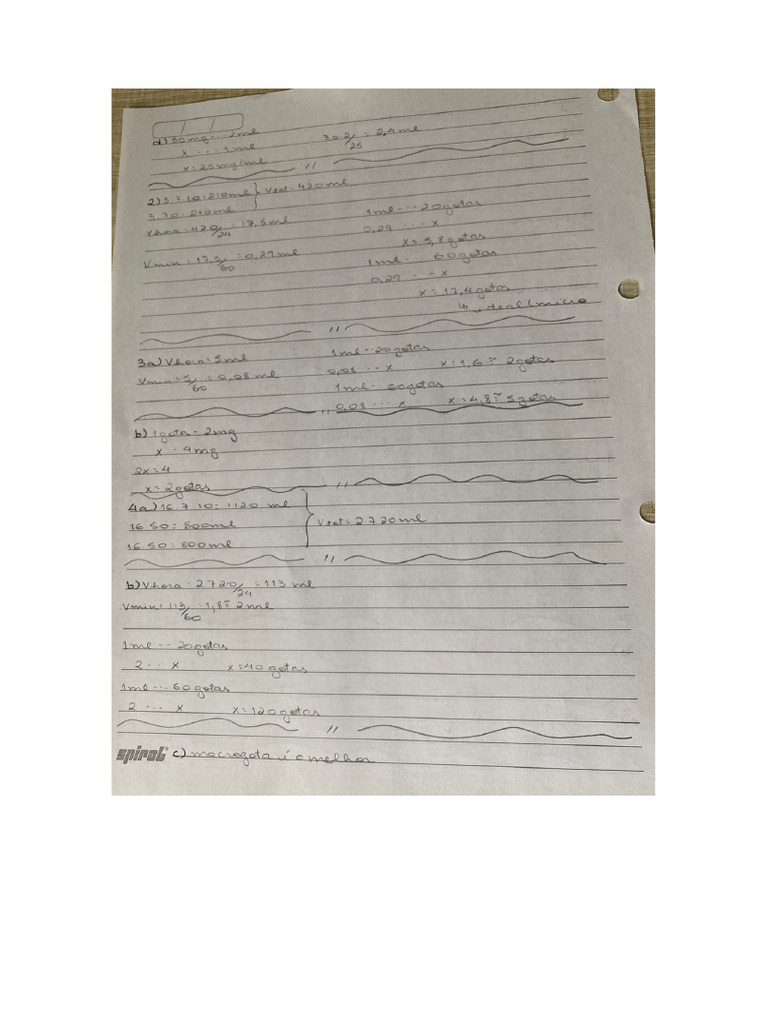 d) 50mg ... 2ml
x ... 1ml
x = 25mg/ml
30.2/25 = 2,4ml
2) 3.7.10 = 210ml } Vtot = 420ml
3.70 = 210ml
Vhora = 420/24 = 17,5ml
Vmin = 17,5/60 = 0,29ml
1ml ... 20gotas
0,29 ... x
x = 5,8gotas
1ml ... 60gotas
0,29 ... x
x = 17,4gotas
↳ ideal (micro
3a) Vhora = 5ml
Vmin = 5/60 = 0,08ml
1ml - 20gotas
0,08 ... x x = 1,6 ≅ 2gotas
1ml - 60gotas
0,08 ... x x = 4,8 ≅ 5gotas
b) 1gota - 2mg
x - 4mg
2x = 4
x = 2gotas
4a) 16.7.10 = 1120 ml
16.50 = 800ml } Vtot = 2.720ml
16.50 = 800ml
b) Vhora = 2.720/24 = 113 ml
Vmin = 113/60 = 1,8 ≅ 2ml
1ml -- 20gotas
2 .. x x = 40 gotas
1ml ... 60gotas
2 ... x x = 120gotas
spiral® c) macrogota é o melhor